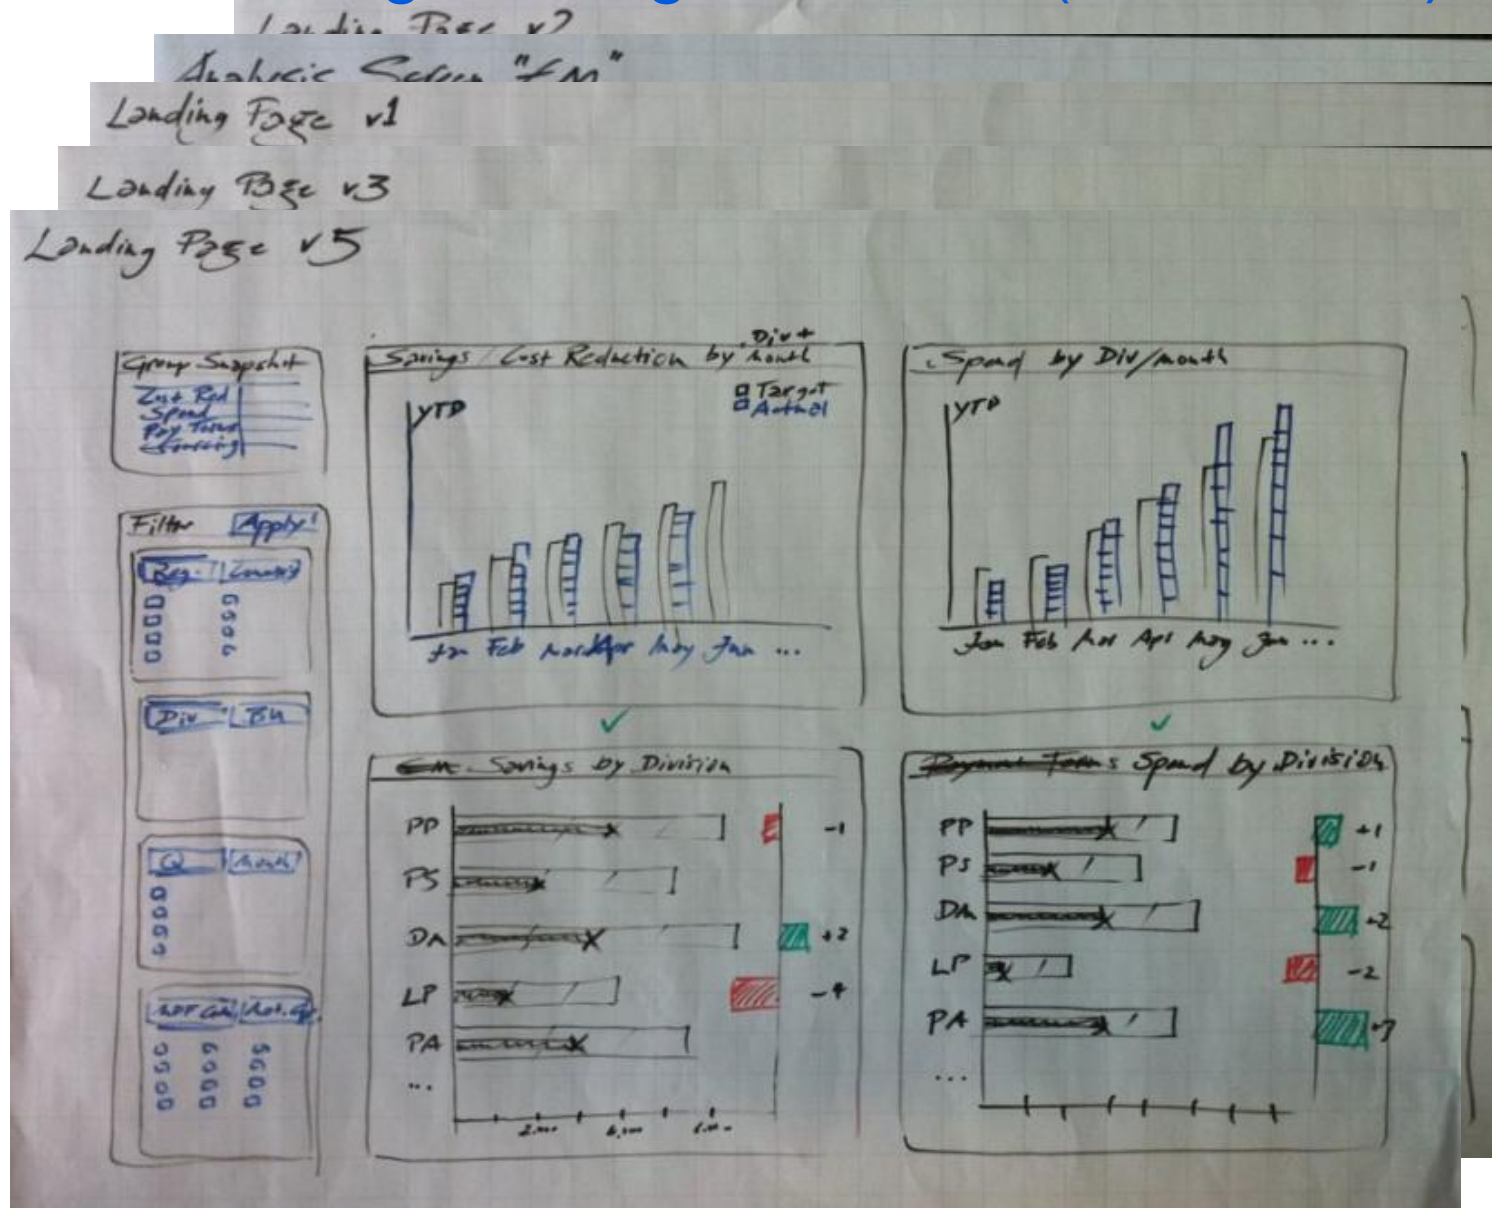 Landing Page v2
Analysis Screen "EM"
Landing Page v1
Landing Page v3
Landing Page v5
Group Snapshot
Cost Red
Spend
Pay Terms
Sourcing
Filter Apply!
Reg. Country
Div BU
Q Month
Savings / Cost Reduction by Div + Month
YTD
Target
Actual
Jan Feb Mar Apr May Jun ...
Spend by Div/month
YTD
Jan Feb Mar Apr May Jun ...
Savings by Division
PP -1
PS
DA +2
LP -4
PA
...
2,000 4,000
Payment Terms Spend by Division
PP +1
PS -1
DA +2
LP -2
PA +3
...